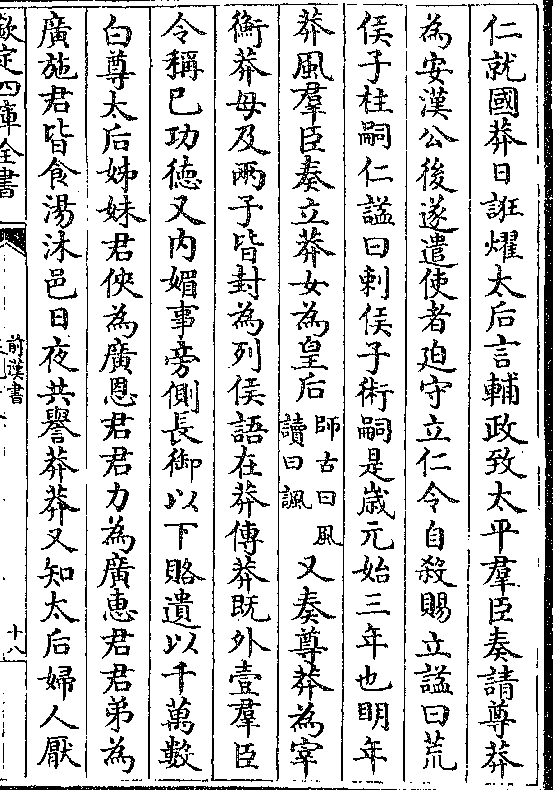 仁就國莽日誑燿太后言輔政致太平羣臣奏請尊莽
為安漢公後遂遣使者迫守立仁令自殺賜立諡曰荒
侯子柱嗣仁諡曰剌侯子術嗣是歲元始三年也明年
莽風羣臣奏立莽女為皇后師古曰風讀曰諷又奏尊莽為宰
衡莽母及兩子皆封為列侯語在莽傳莽既外壹羣臣
令稱已功德又内媚事旁側長御以下賂遺以千萬數
白尊太后姊妹君俠為廣恩君君力為廣惠君君弟為
廣施君皆食湯沐邑日夜共譽莽莽又知太后婦人厭
欽定四庫全書
前漢書
十八